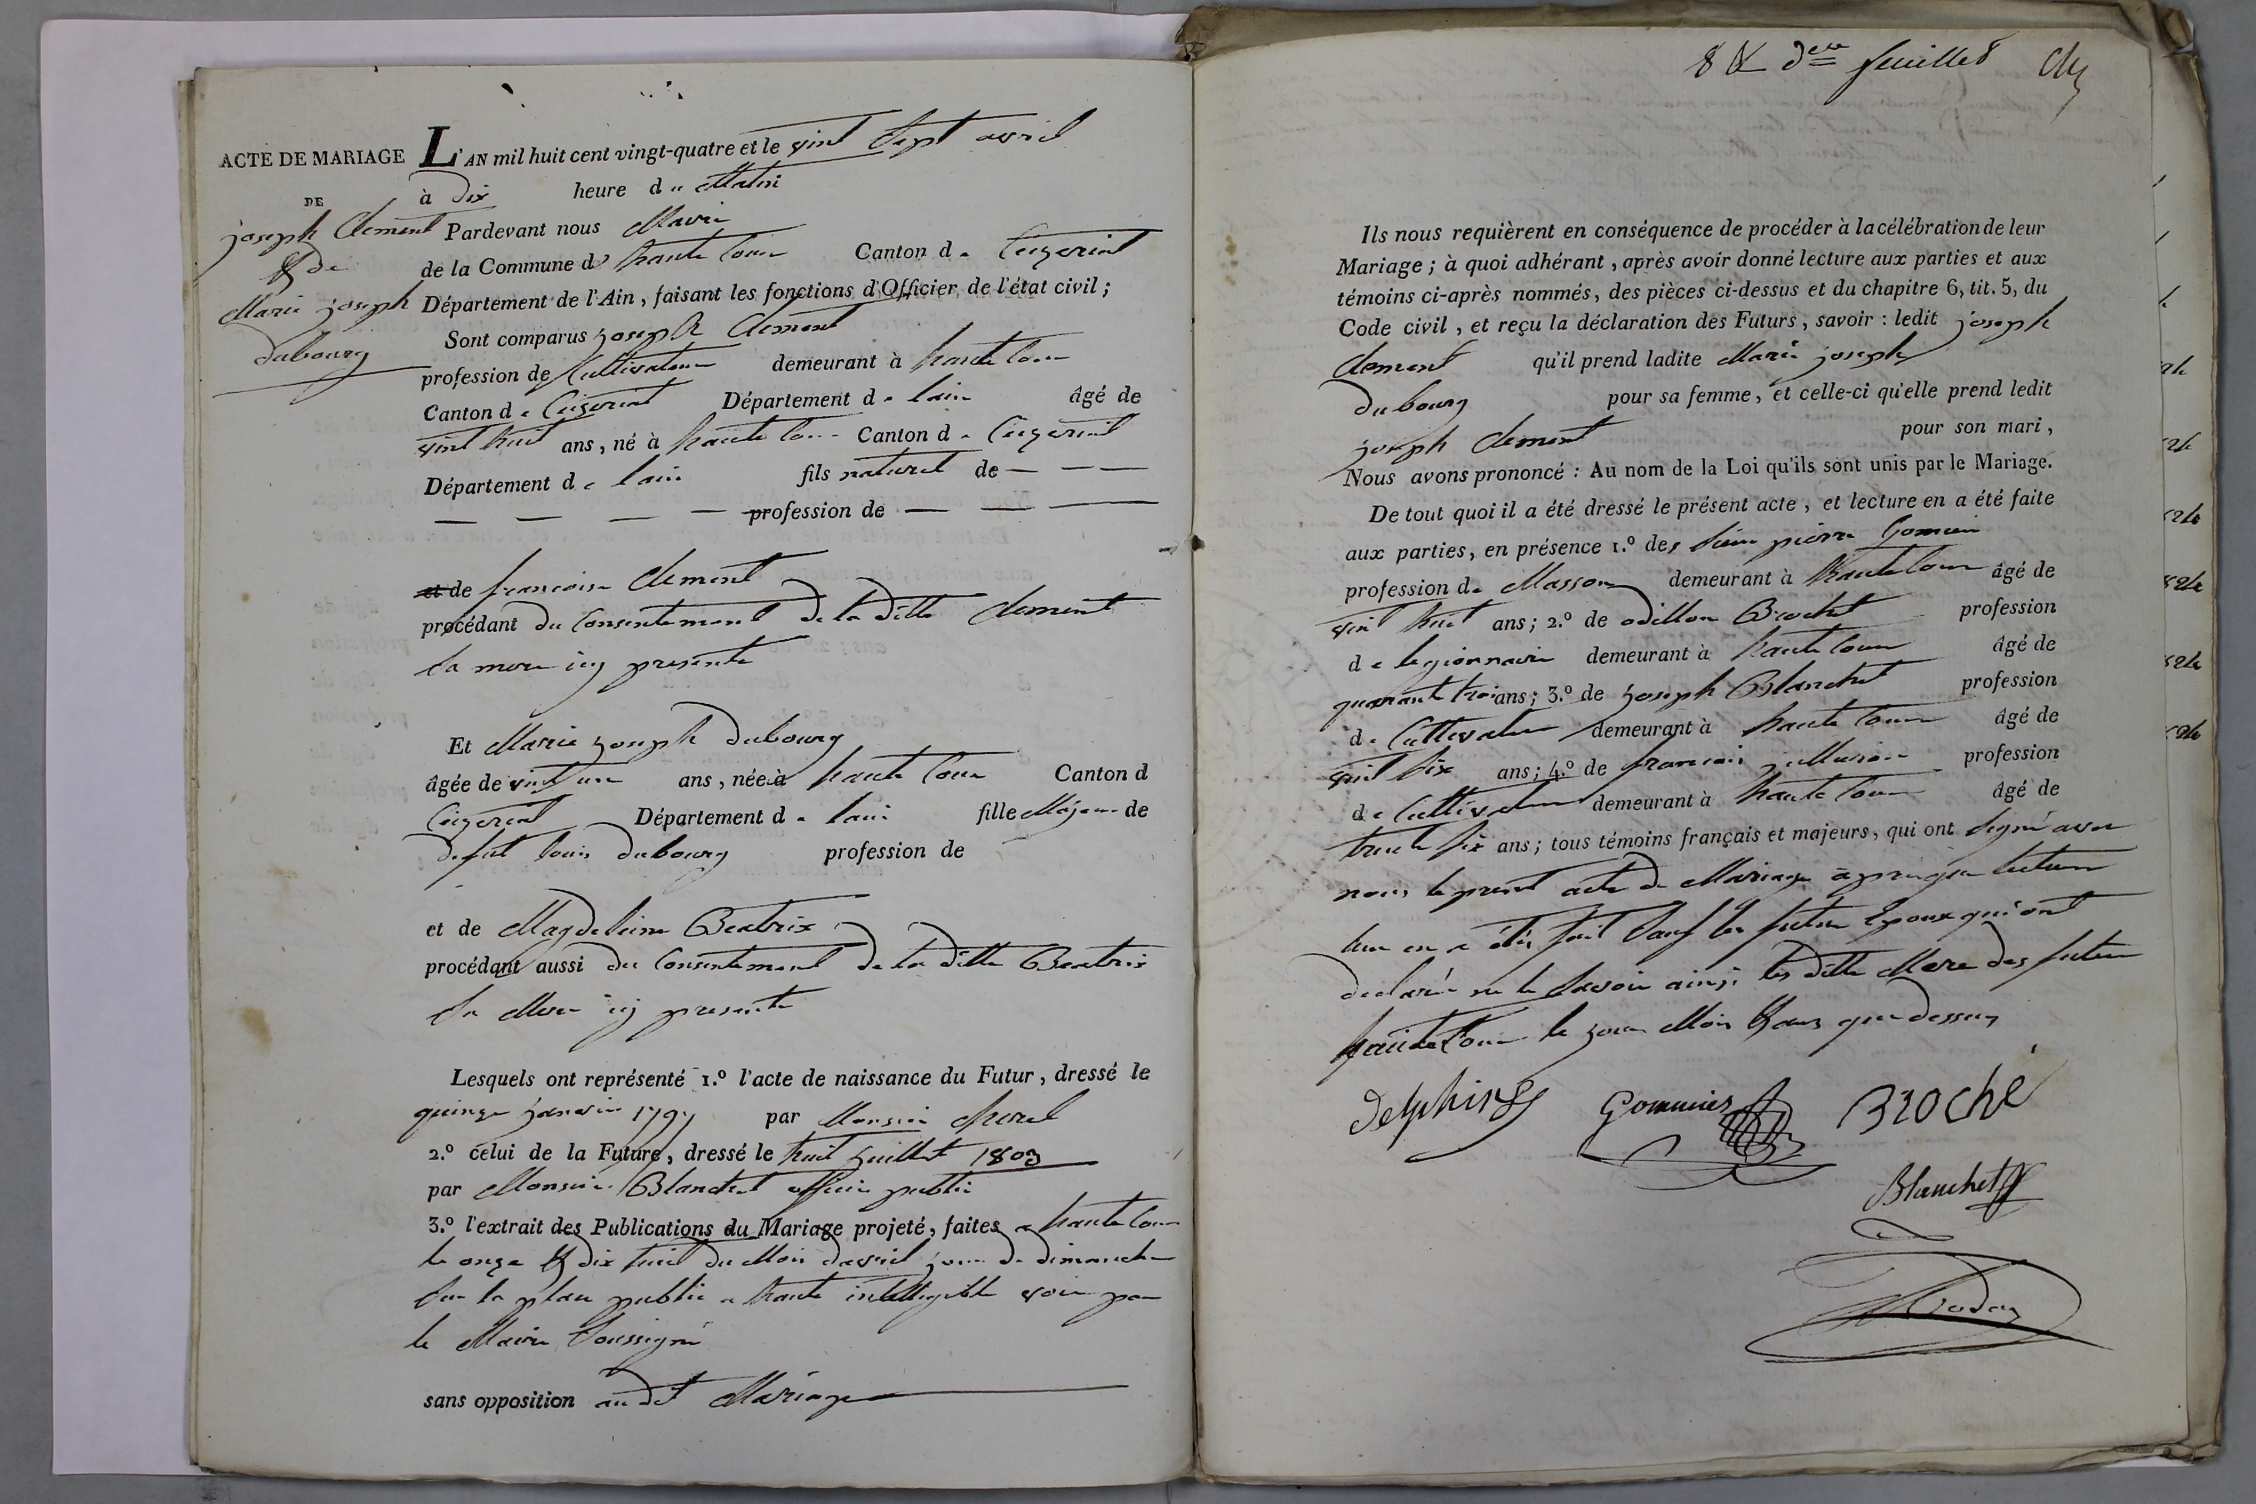 ACTE DE MARIAGE
DE
joseph Clement
& de
Marie joseph
dubourg
L'AN mil huit cent vingt-quatre et le vint Sept avril
à Dix heure du Matin
Pardevant nous Maire
de la Commune d haute Cour Canton de Ceizeriat
Département de l'Ain, faisant les fonctions d'Officier de l'état civil;
Sont comparus joseph Clement
profession de Cultivateur demeurant à haute Cour
Canton de Ceizeriat Département de lain âgé de
vint huit ans, né à haute Cour Canton de Ceizeriat
Département de lain fils naturel de — — —
— — — — profession de — — —
et de francoise Clement
procédant du Consentement de la ditte Clement
Sa mere icy presente
Et Marie joseph dubourg
âgée de vint un ans, née à haute Cour Canton d
Ceizeriat Département de lain fille Majeure de
defut louis dubourg profession de
et de Magdeleine Beatrix
procédant aussi du Consentement de la ditte Beatrix
Sa Mere icy presente
Lesquels ont représenté 1.º l'acte de naissance du Futur, dressé le
quinze janvier 1797 par Monsieur
2.º celui de la Future, dressé le huit juillet 1803
par Monsieur Blanchet officier public
3.º l'extrait des Publications du Mariage projeté, faites a haute Cour
le onze & dix huit du Mois davril jour de dimanche
Sur la place public a haute intelligible voix par
le Maire Soussigné
sans opposition au dt Mariage
8 & dere feuillet
Ils nous requièrent en conséquence de procéder à la célébration de leur
Mariage; à quoi adhérant, après avoir donné lecture aux parties et aux
témoins ci-après nommés, des pièces ci-dessus et du chapitre 6, tit. 5, du
Code civil, et reçu la déclaration des Futurs, savoir: ledit joseph
Clement qu'il prend ladite Marie joseph
dubourg pour sa femme, et celle-ci qu'elle prend ledit
joseph Clement pour son mari,
Nous avons prononcé: Au nom de la Loi qu'ils sont unis par le Mariage.
De tout quoi il a été dressé le présent acte, et lecture en a été faite
aux parties, en présence 1.º des Sieur pierre
profession de Masson demeurant à haute Cour âgé de
vint huit ans; 2.º de odillon Brochet profession
de legionnaire demeurant à haute Cour âgé de
quarante trois ans; 3.º de joseph Blanchet profession
de Cultivateur demeurant à haute Cour âgé de
vint Six ans; 4.º de francois profession
de Cultivateur demeurant à haute Cour âgé de
trente Six ans; tous témoins français et majeurs, qui ont Signé avec
nous le present acte de Mariage apres que lecture
leur en a étée fait Sauf les futur Epoux qui ont
declaré ne le Savoir ainsi les ditte Mere des futur
haute Cour le jour Mois & ans que dessus
Gommier BROChé
Blanchet